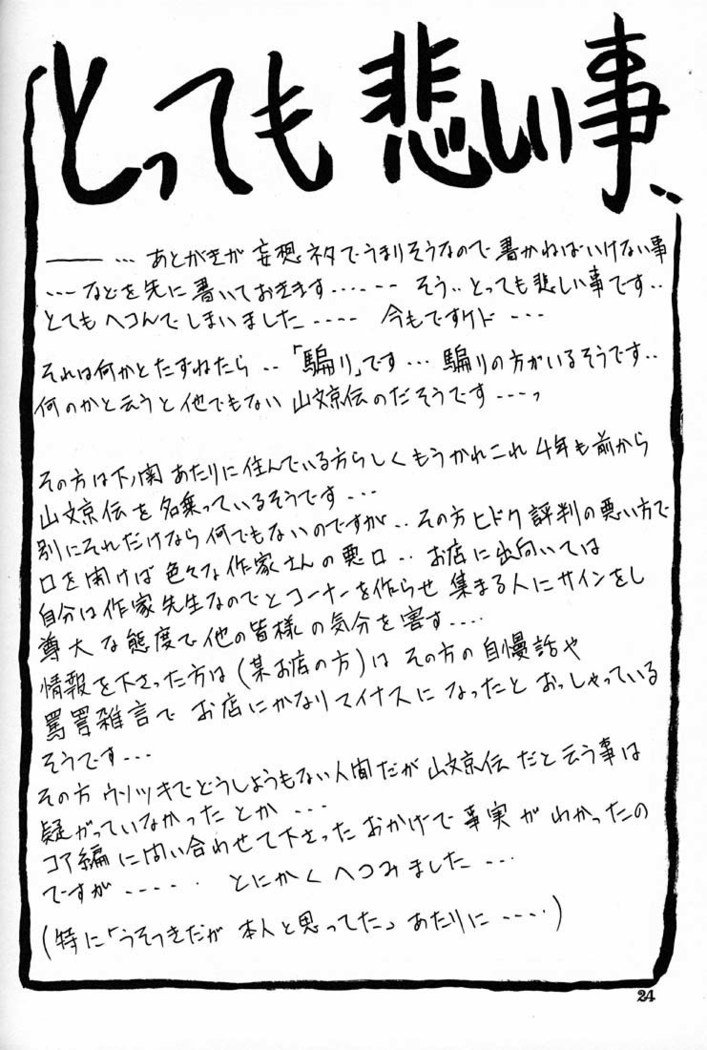 とっても悲しい事‥
―― … あとがきが 妄想ネタでうまりそうなので 書かねばいけない事
--- などを先に書いておきます…--- そう‥とっても悲しい事です‥
とてもヘコんでしまいました ---- 今もですケド ---
それは何かとたずねたら ‥「騙り」です… 騙りの方がいるそうです‥
何のかと云うと他でもない 山文京伝のだそうです ---っ
その方は下ノ関 あたりに住んでいる方らしく もうかれこれ 4年も前から
山文京伝を名乗っているそうです ---
別にそれだけなら何でもないのですが‥その方ヒドク評判の悪い方で
口を開けば 色々な作家さんの悪口 ‥ お店に出向いては
自分は作家先生なのでとコーナーを作らせ 集まる人にサインをし
尊大な態度で他の皆様の気分を害す----
情報を下さった方は(某お店の方)は その方の自慢話や
罵詈雑言で お店にかなりマイナスに なったと おっしゃっている
そうです---
その方 ウソツキでどうしようもない人間だが 山文京伝だと云う事は
疑がっていなかった とか ---
コア編に問い合わせて下さった おかげで 事実が わかったの
ですが ----- とにかく へコみました ---
(特に「うそつきだが 本人と思ってた」あたりに ----)
24